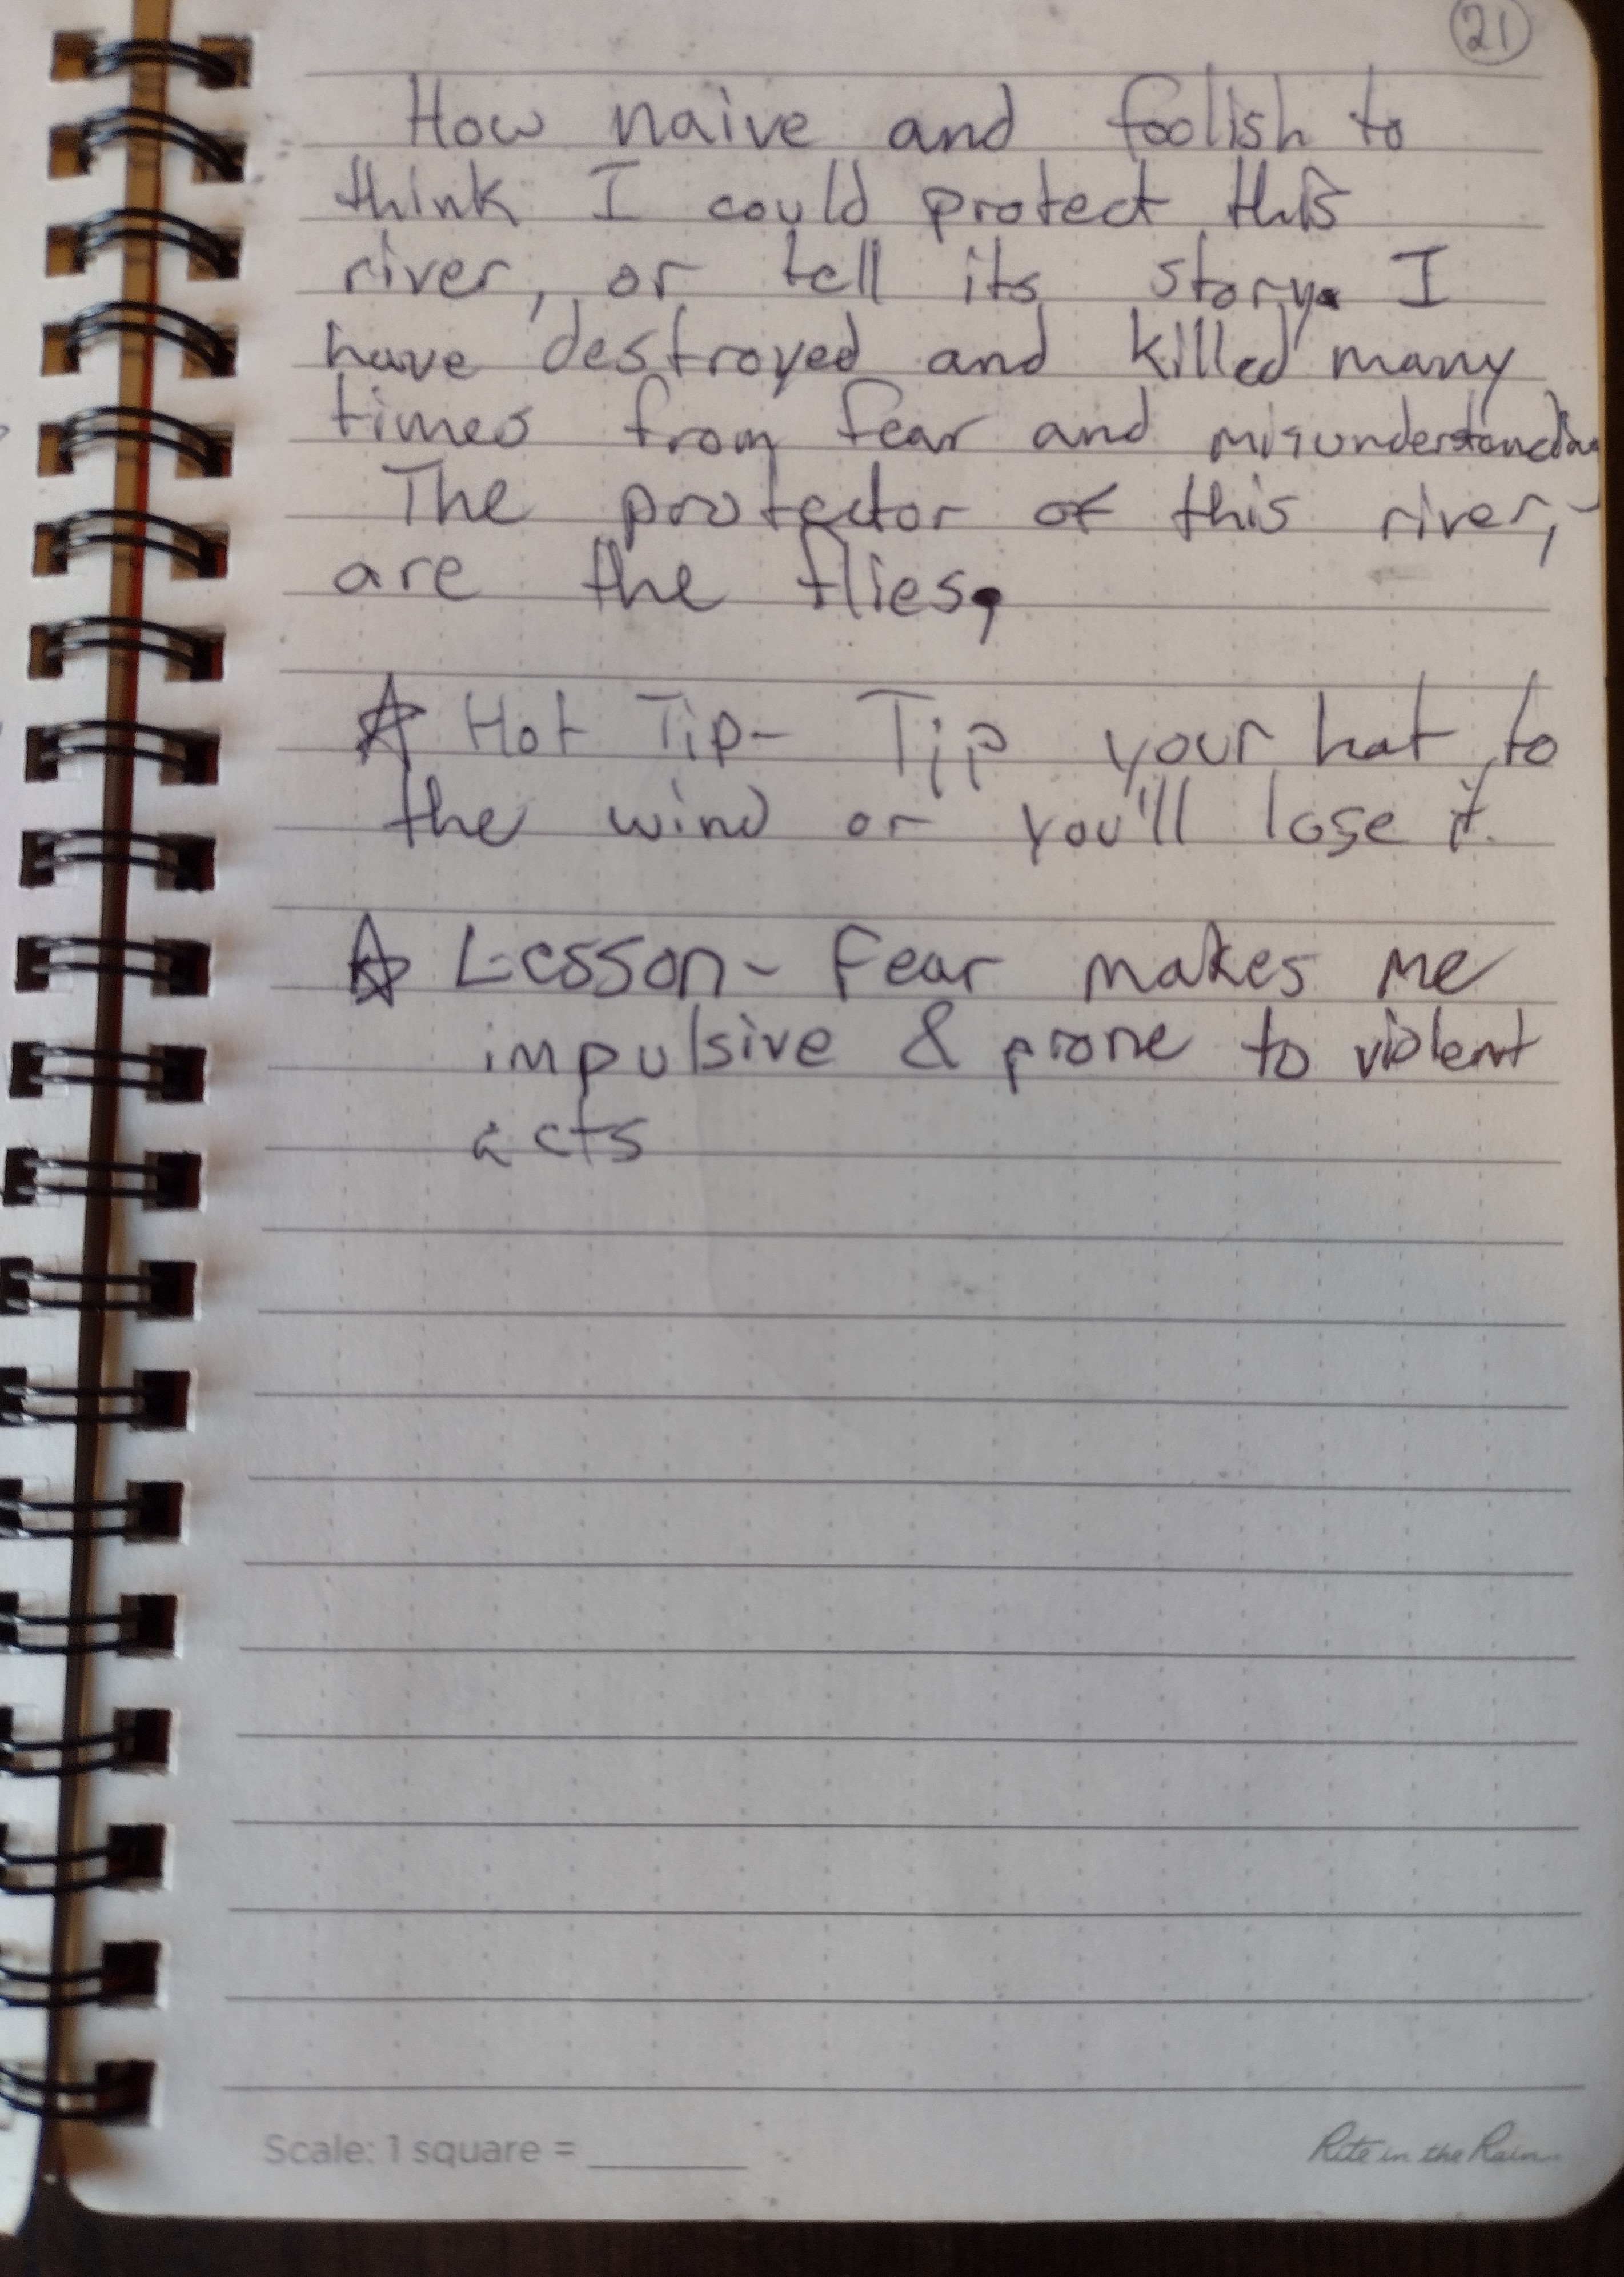 21
How naive and foolish to
think I could protect this
river, or tell its story. I
have destroyed and killed many
times from fear and misunderstanding
The protector of this river,
are the flies,
☆ Hot Tip- Tip your hat to
the wind or you'll lose it.
☆ Lesson- Fear makes me
impulsive & prone to violent
acts
Scale: 1 square = ______
Rite in the Rain